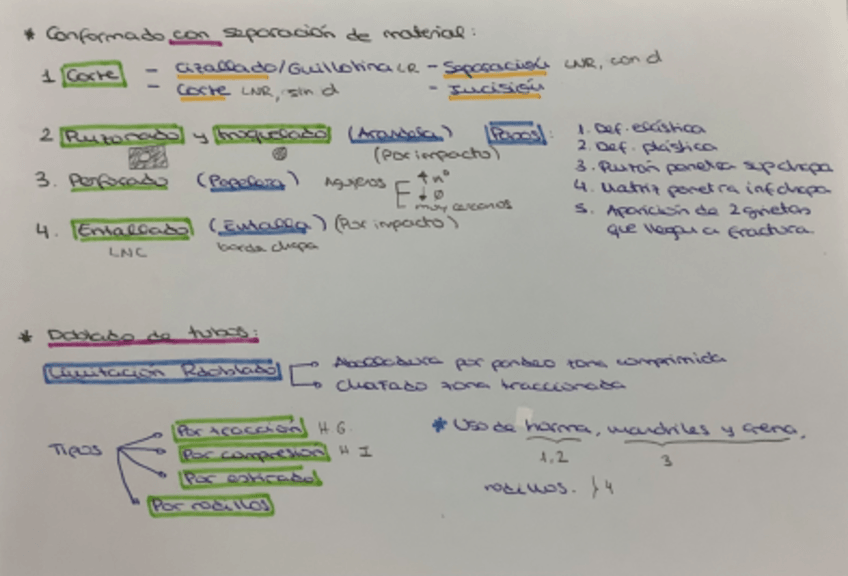 * Conformado con separación de material:
1 Corte - Cizallado/Guillotina LR - Separación LNR, con d
- Corte LNR, sin d - Incisión
2 Punzonado y troquelado (Arandela) Pasos:
(Por impacto)
1. Def. elástica
2. Def. plástica
3. Punzón penetra sup chapa
4. Matriz penetra inf chapa
5. Aparición de 2 grietas
que llegan a fractura
3. Perforado (Papelera) Agujeros ↑ nº
↓ Ø
muy cercanos
4. Entallado (Entalla) (Por impacto)
LNC borde chapa
* Doblado de tubos:
Limitación Rdoblado Abolladura por pandeo zona comprimida
Chafado zona traccionada
Tipos
Por tracción H G
Por compresión H I
Por estirado
Por rodillos
* Uso de horma, mandriles y arena,
1,2 3
rodillos. } 4